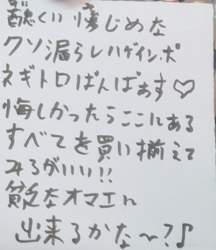 醜くい惨じめな
クソ漏らしハゲインポ
ネギトロばんばぁす♡
悔しかったらここにある
すべてを買い揃えて
みろがいい!!
貧乏なオマエに
出来るかな〜?♪